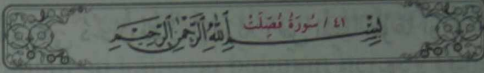 ٤١ / سُورَةُ فُصِّلَتْ
بِسْمِ اللَّهِ الرَّحْمَٰنِ الرَّحِيمِ